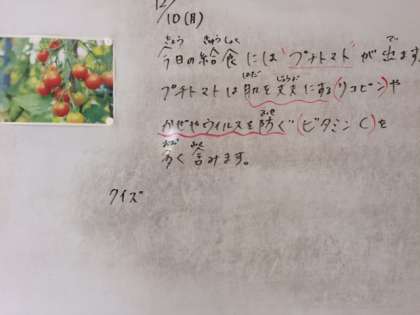 12/
10(月)
きょう きゅうしょく で
今日の給食には"プチトマト"が出ます。
はだ じょうぶ
プチトマトは肌を丈夫にする(リコピン)や
ふせ
かぜやウイルスを防ぐ(ビタミンC)を
おお ふく
多く含みます。
クイズ